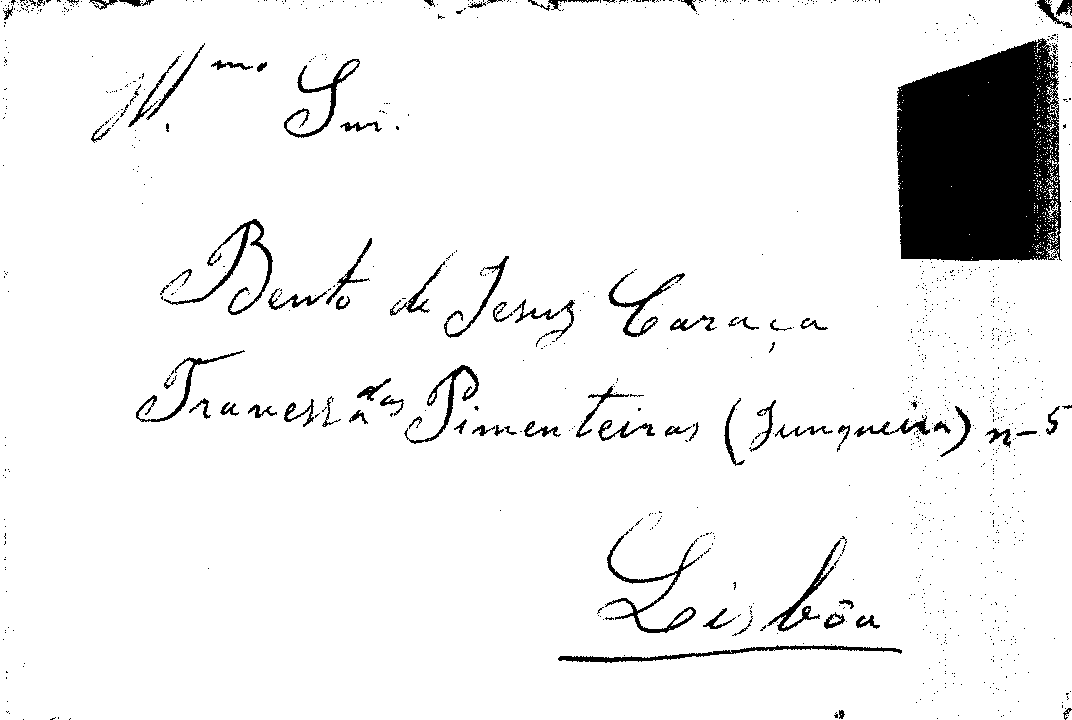 Ill.mo Snr.
Bento de Jesus Caraça
Travessa das Pimenteiras (Junqueira) n-5
Lisbôa